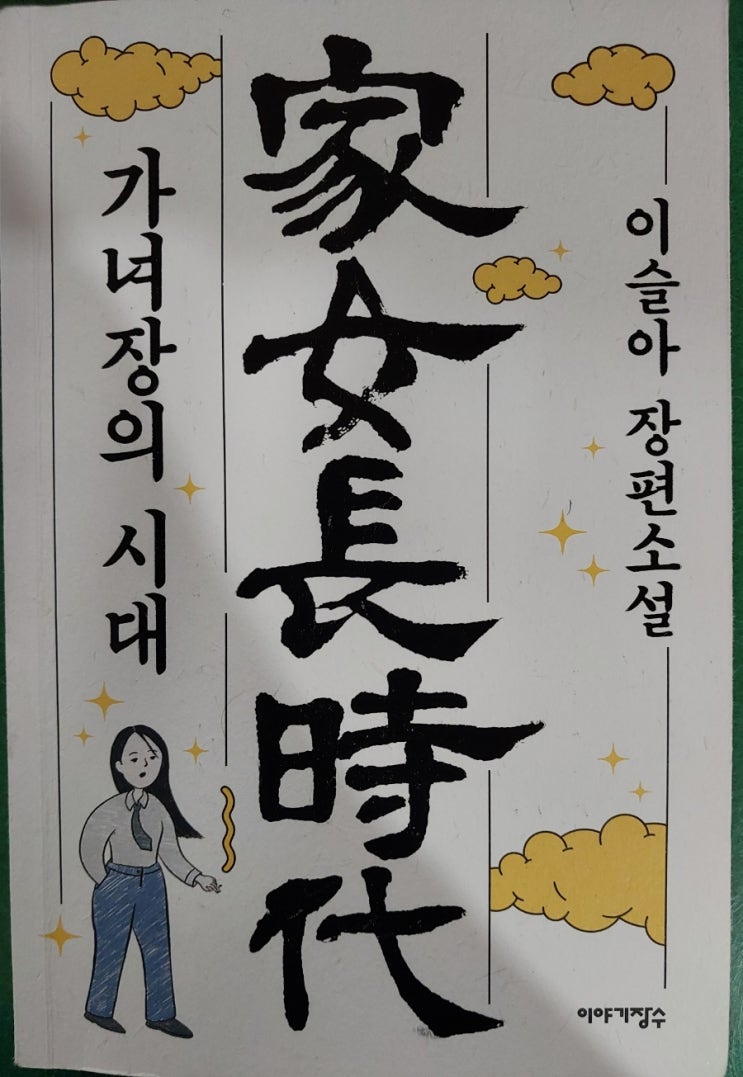 家女長時代
가녀장의 시대
이슬아 장편소설
이야기장수